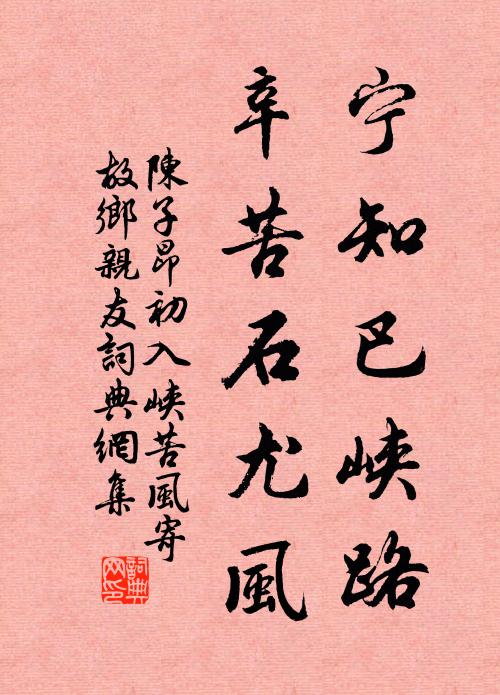 宁知巴峡路
辛苦石尤風
陳子昂初入峡苦風寄
故鄉親友詞典網集
詞典
网印